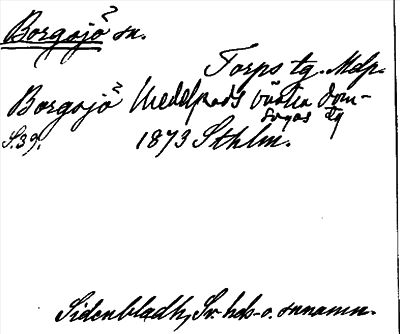 Borgsjö sn.
Torps tg. Mdp.
Borgsjö Medelpads västra dom-
sagas tg
S.39. 1873 Sthlm.
Sidenbladh, Sv. hds- o. snnamn.